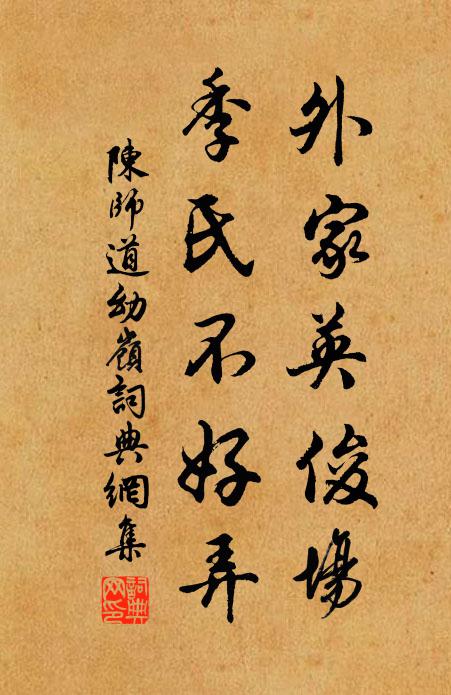 外家英俊場
季氏不好弄
陳師道幼嶺詞典網集
詞典
網印